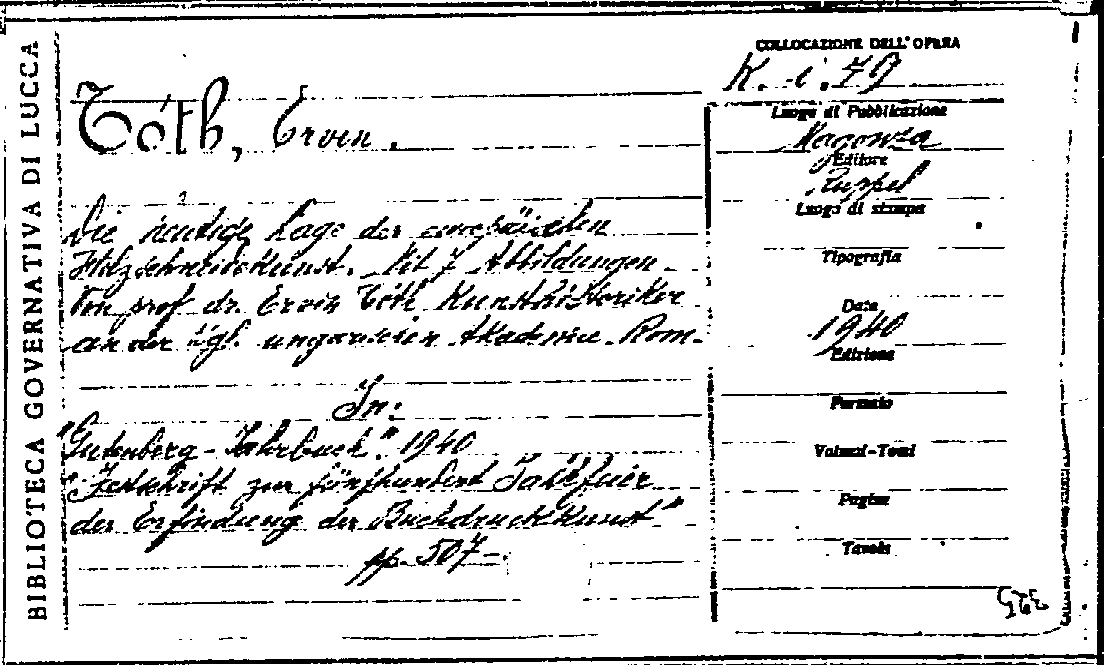 BIBLIOTECA GOVERNATIVA DI LUCCA
COLLOCAZIONE DELL'OPERA
K. i. 79
Tóth, Ervin.
Die heutige Lage der europäischen
Holzschneidekunst. Mit 7 Abbildungen
Von prof. dr. Ervin Tóth Kunsthistoriker
an der kgl. ungarischen Akademie Rom.
In:
"Gutenberg-Jahrbuch". 1940
"Festschrift zur fünfhundert Jahrfeier
der Erfindung der Buchdruckkunst"
pp. 507-
Luogo di Pubblicazione
Magonza
Editore
Ruppel
Luogo di stampa
Tipografia
Data
1940
Edizione
Formato
Volumi-Tomi
Pagine
Tavole